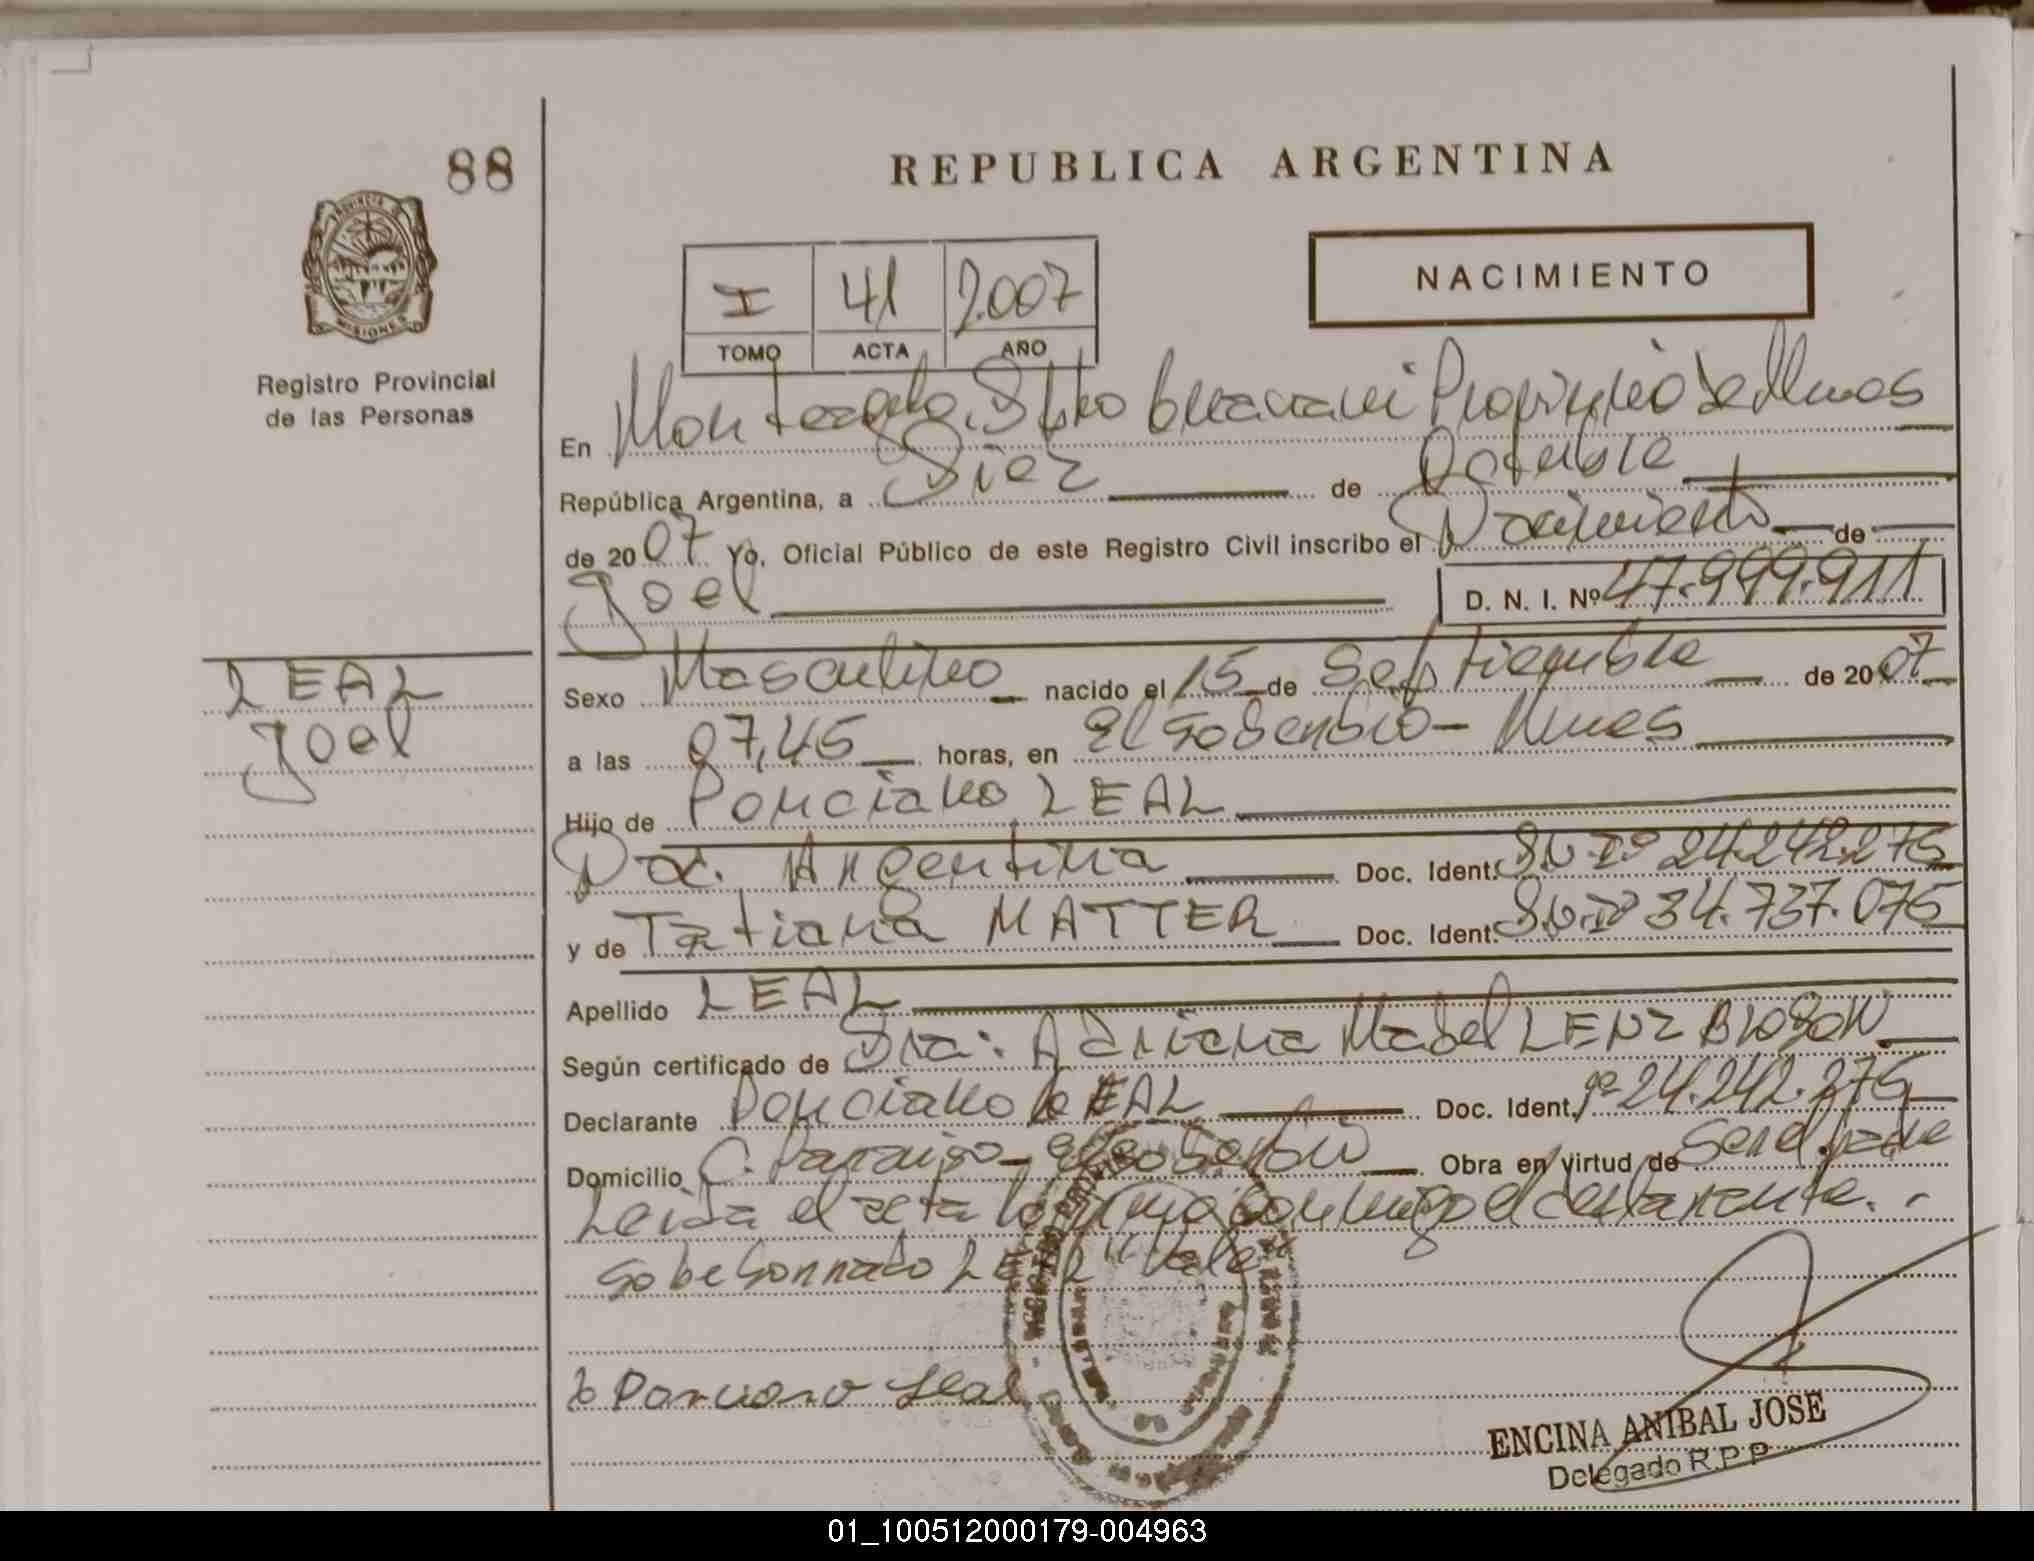 88
REPUBLICA ARGENTINA
PROVINCIA DE MISIONES
Registro Provincial
de las Personas
NACIMIENTO
I 41 2.007
TOMO ACTA AÑO
En Monteagudo, Dpto Guarani Provincia de Mnes
República Argentina, a Diez de Octubre
de 2007 Yo, Oficial Público de este Registro Civil inscribo el Nacimiento de
Joel D. N. I. Nº 47.999.911
LEAL
Joel
Sexo Masculino nacido el 15 de Septiembre de 2007
a las 07,45 horas, en El Soberbio - Mnes
Hijo de Ponciano LEAL
Nac. Argentina Doc. Ident. D.N.Iº 24.242.275
y de Tatiana MATTER Doc. Ident. D.N.Iº 34.737.075
Apellido LEAL
Según certificado de Dra: Adriana Mabel LENZ
Declarante Ponciano LEAL Doc. Ident. nº 24.242.275
Domicilio C. Paraiso - El Soberbio Obra en virtud de Ser el padre
Leida el acta la firma conmigo el declarante. -
sobe borrado LEAL "Vale"
Ponciano Leal
ENCINA ANIBAL JOSE
Delegado R.P.P
01_100512000179-004963